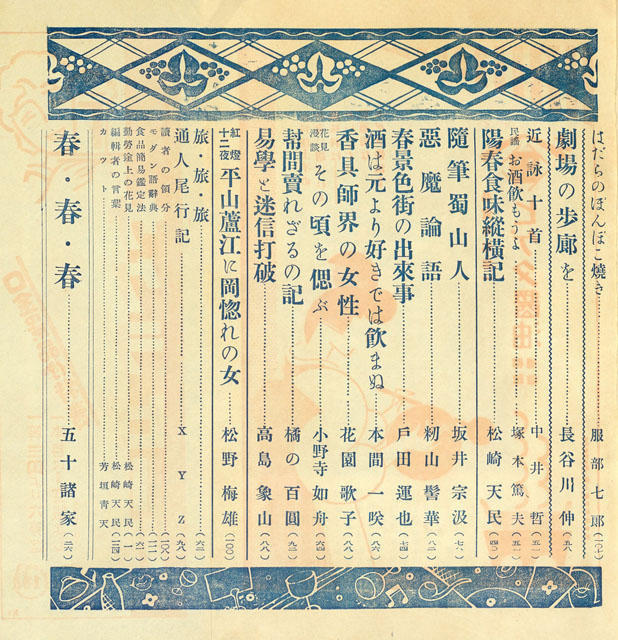 はだらのぽんぽこ燒き……服部七郎
劇場の步廊を……長谷川伸(五八)
近詠十首……中井哲(五一)
民謠 お酒飮もうよ……塚本篤夫(五)
陽春食味縱橫記……松崎天民(四)
隨筆蜀山人……坂井宗汲(七)
惡魔論語……籾山髻華(八二)
春景色街の出來事……戶田運也(七四)
酒は元より好きでは飮まぬ……本間一咲(七六)
香具師界の女性……花園歌子(八八)
花見漫談 その頃を偲ぶ……小野寺如舟(九四)
幇間賣れざるの記……橘の百圓(九二)
易學と迷信打破……高島象山(八六)
紅燈十二夜 平山蘆江に岡惚れの女……松野梅雄(一〇〇)
旅・旅・旅……(六二)
通人尾行記……XYZ(九八)
讀者の領分……(一〇四)
モダン語辭典……(一一)
食品簡易鑑定法……(六)
勤勞途上の花見……松崎天民(一)
編輯者の言葉……松崎天民(一一四)
カット……芳垣靑天
春・春・春……五十諸家(二六)